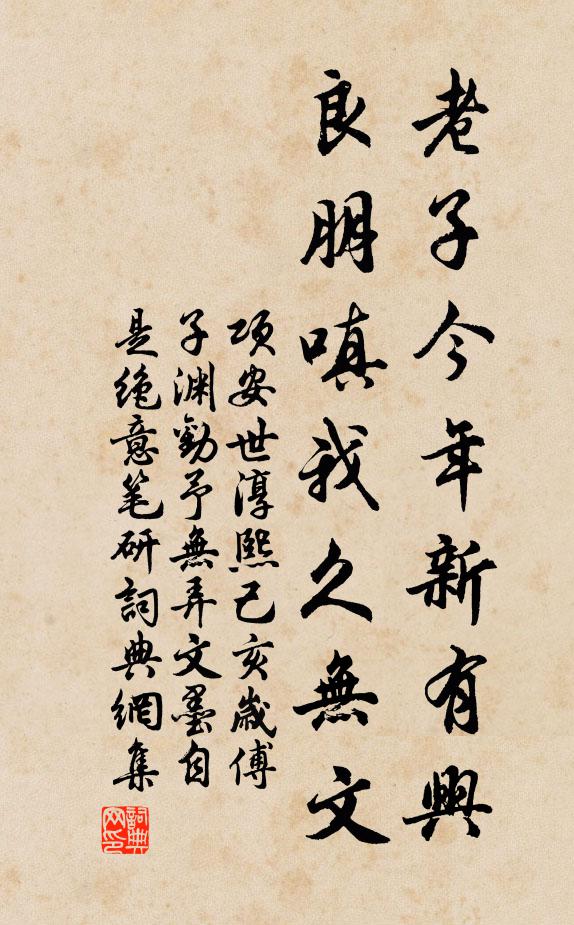 老子今年新有興
良朋嗔我久無文
項安世淳熙己亥歲傅
子淵勸予無弄文墨自
是絶意笔研詞典網集
詞典网印